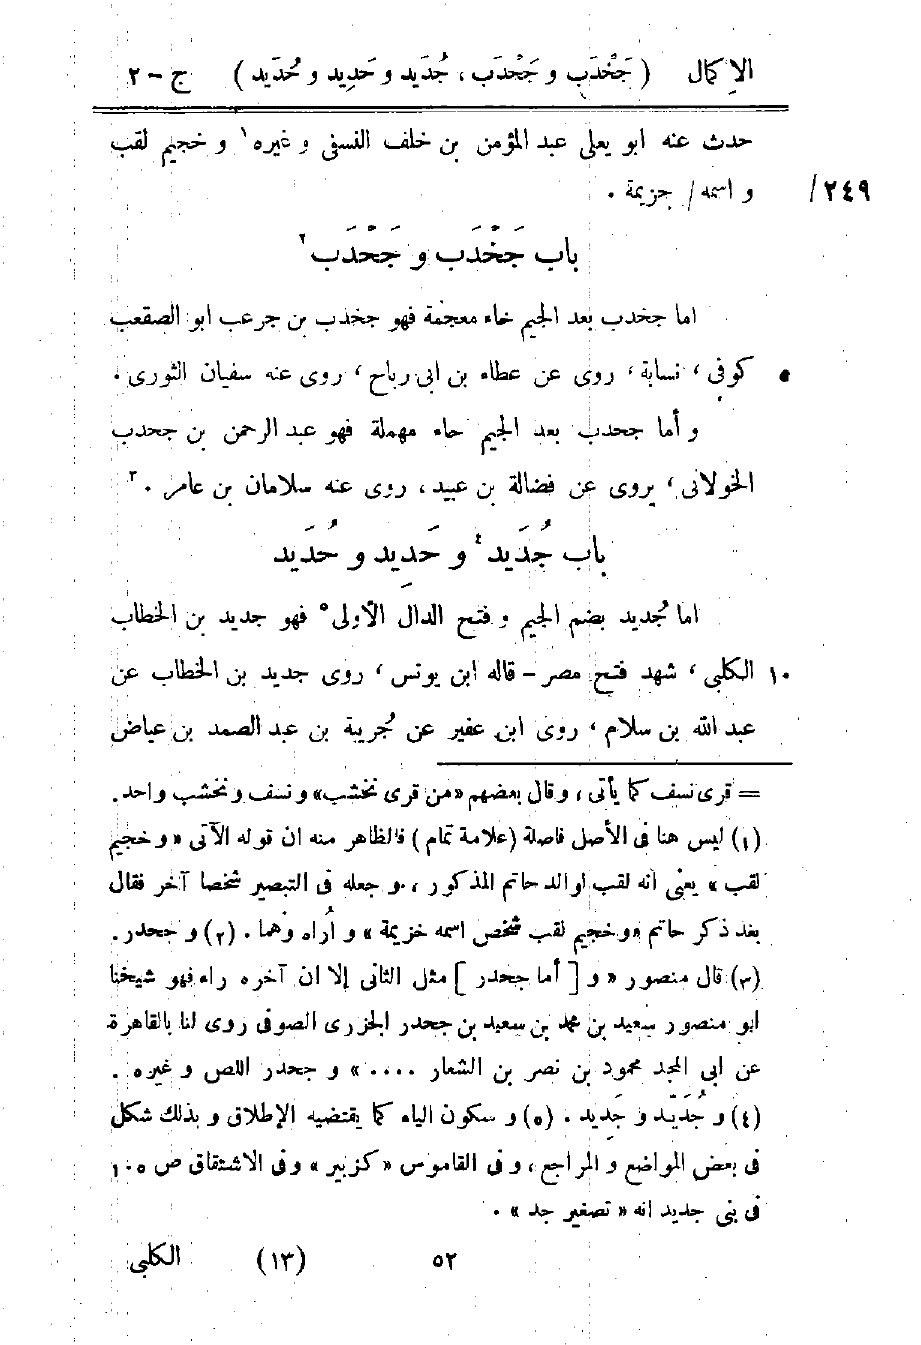 الإكمال ( جَخْدَب و جَحْدَب ، جُدَيد و حَدِيد و حُدَيد ) ج - ٢
حدث عنه ابو يعلى عبد المؤمن بن خلف النسفى و غيره ١ و خجيم لقب
٢٤٩/ و اسمه / جزيمة .
باب جَخْدَب و جَحْدَب ٢
اما جخدب بعد الجيم خاء معجمة فهو جخدب بن جرعب ابو الصقعب
٥ كوفى ، نسابة ، روى عن عطاء بن ابى رباح ، روى عنه سفيان الثورى .
و أما جحدب بعد الجيم حاء مهملة فهو عبد الرحمن بن جحدب
الخولانى ، يروى عن فضالة بن عبيد ، روى عنه سلامان بن عامر . ٣
باب جُدَيد ٤ و حَدِيد و حُدَيد
اما جُديد بضم الجيم و فتح الدال الأولى ٥ فهو جديد بن الخطاب
١٠ الكلبى ، شهد فتح مصر - قاله ابن يونس ، روى جديد بن الخطاب عن
عبد الله بن سلام ، روى ابن عفير عن جُريبة بن عبد الصمد بن عياض
= قرى نسف كما يأتى ، وقال بعضهم «من قرى نخشب» و نسف و نخشب واحد .
(١) ليس هنا فى الأصل فاصلة (علامة تمام) فالظاهر منه ان قوله الآتى « و خجيم
لقب » يعنى انه لقب لوالد حاتم المذكور ، و جعله فى التبصير شخصا آخر فقال
بعد ذكر حاتم «و خجيم لقب شخص اسمه خزيمة » و أُراه وهما . (٢) و جحدر .
(٣) قال منصور « و [ أما جحدر ] مثل الثانى إلا ان آخره راء فهو شيخنا
ابو منصور سعيد بن محمد بن سعيد بن جحدر الجزرى الصوفى روى لنا بالقاهرة
عن ابى المجد محمود بن نصر بن الشعار .... » و جحدر اللص و غيره .
(٤) و جُدَيِّد و جَدِيد . (٥) و سكون الياء كما يقتضيه الإطلاق و بذلك شكل
فى بعض المواضع و المراجع ، و فى القاموس « كزبير » و فى الاشتقاق ص ١٠٥
فى بنى جديد انه « تصغير جد » .
٥٢ (١٣) الكلبى